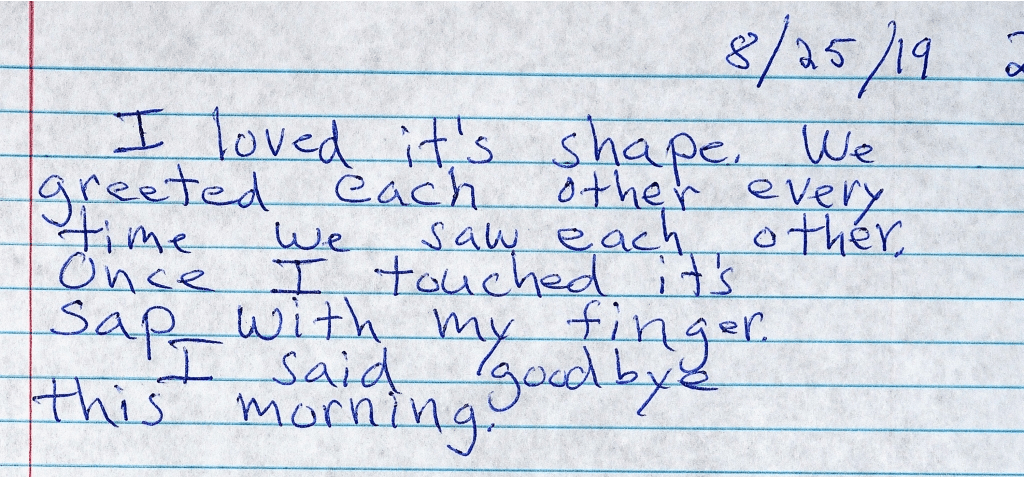 8/25/19
I loved it's shape. We
greeted each other every
time we saw each other.
Once I touched it's
sap with my finger.
I said goodbye
this morning.